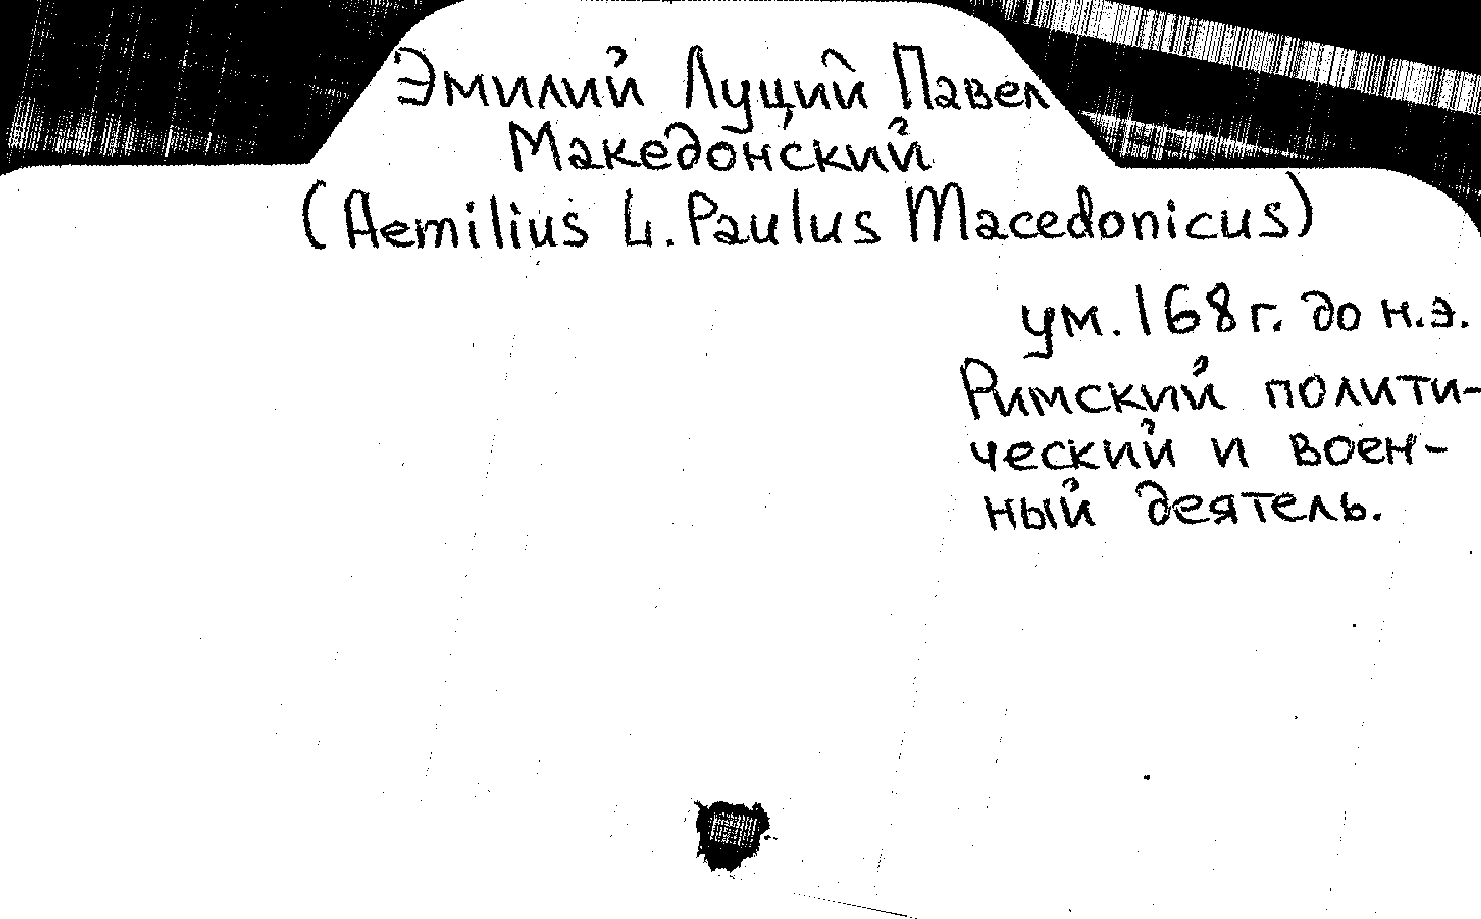 Эмилий Луций Павел
Македонский
(Aemilius L. Paulus Macedonicus)
ум. 168 г. до н.э.
Римский полити-
ческий и воен-
ный деятель.